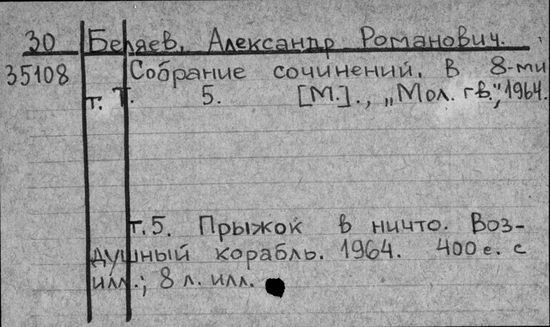 30 Беляев, Александр Романович.
35108 Собрание сочинений. В 8-ми
т. т. 5. [М.]., „Мол. гв.”, 1964.
т.5. Прыжок в ничто. Воз-
душный корабль. 1964. 400 с. с
илл.; 8 л. илл.